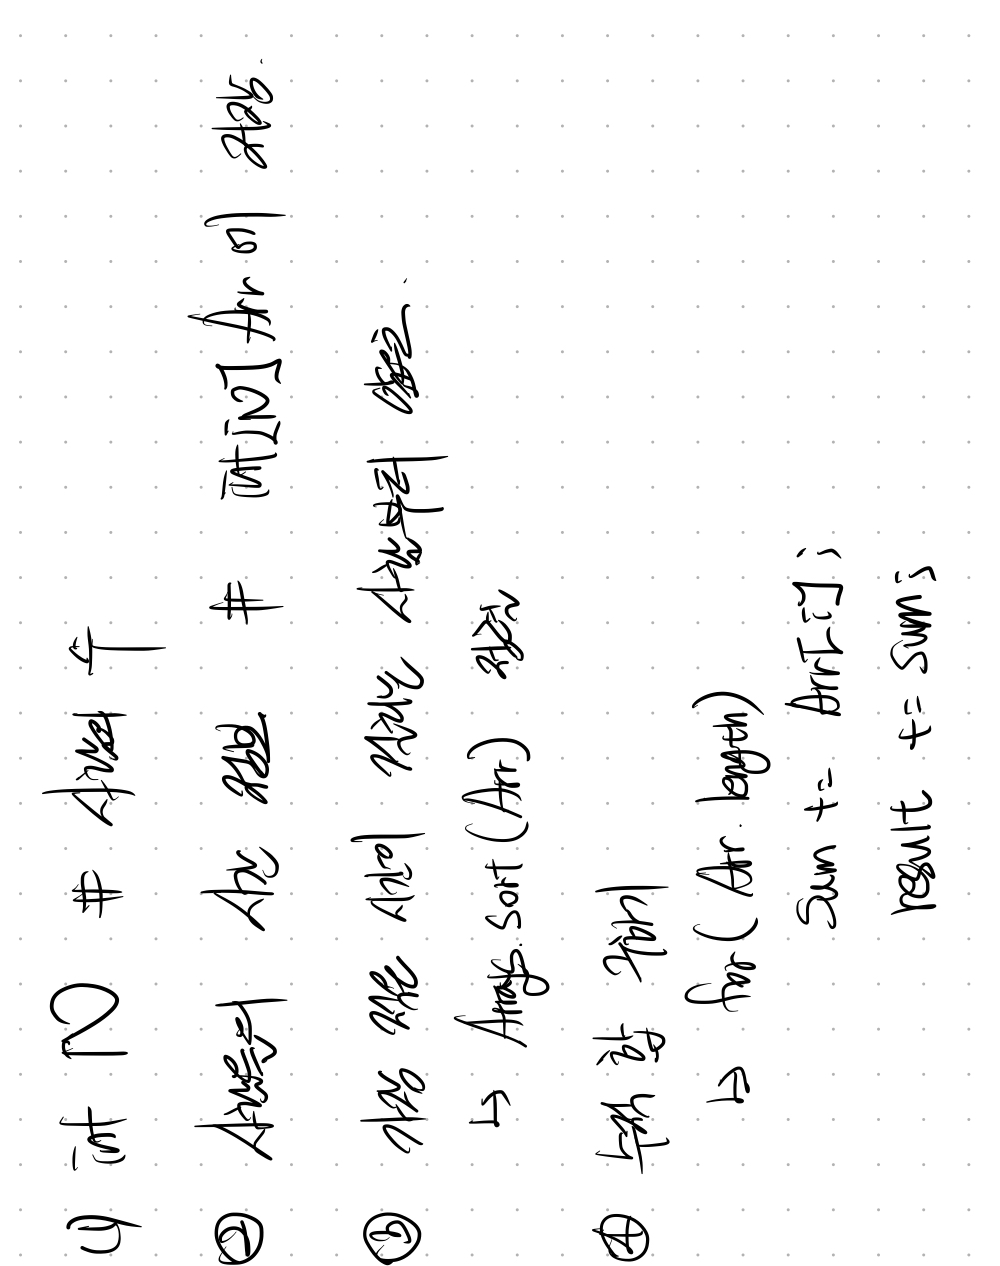 1) int N # 사람의 수
② 사람들의 시간 값을 # int[N] Arr 에 저장.
③ 가장 적은 시간이 걸리는 사람부터 앞으로.
↳ Arrays.Sort(Arr) 정렬
④ 누적 합 구하기
↳ for ( Arr. length)
Sum += Arr[i];
result += Sum;